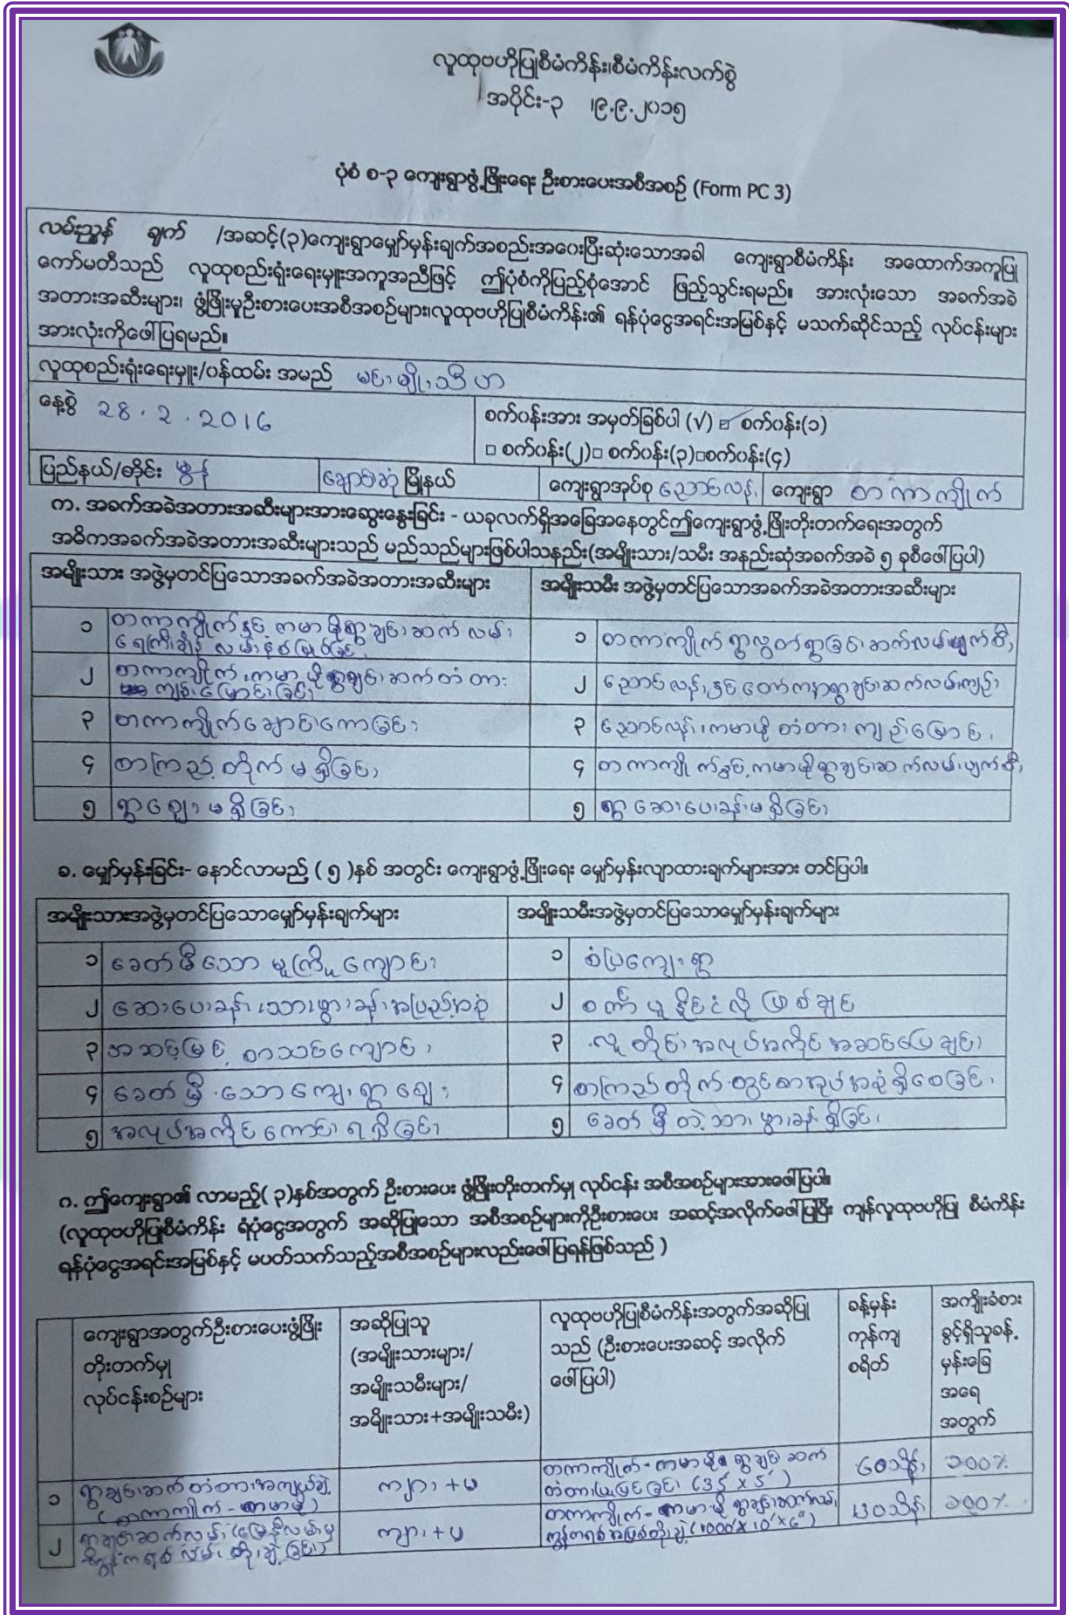 လူထုဗဟိုပြုစီမံကိန်း၊စီမံကိန်းလက်စွဲ
အပိုင်း-၃ ၊၉.၉.၂၀၁၅
ပုံစံ စ-၃ ကျေးရွာဖွံ့ဖြိုးရေး ဦးစားပေးအစီအစဉ် (Form PC 3)
လမ်းညွှန် ချက် /အဆင့်(၃)ကျေးရွာမျှော်မှန်းချက်အစည်းအဝေးပြီးဆုံးသောအခါ ကျေးရွာစီမံကိန်း အထောက်အကူပြု
ကော်မတီသည် လူထုစည်းရုံးရေးမှူးအကူအညီဖြင့် ဤပုံစံကိုပြည့်စုံအောင် ဖြည့်သွင်းရမည်။ အားလုံးသော အခက်အခဲ
အတားအဆီးများ၊ ဖွံ့ဖြိုးမှုဦးစားပေးအစီအစဉ်များ၊လူထုဗဟိုပြုစီမံကိန်း၏ ရန်ပုံငွေအရင်းအမြစ်နှင့် မသက်ဆိုင်သည့် လုပ်ငန်းများ
အားလုံးကိုဖေါ်ပြရမည်။
လူထုစည်းရုံးရေးမှူး/ဝန်ထမ်း အမည် မင်းမျိုးသီဟ
နေ့စွဲ 28.2.2016
စက်ဝန်းအား အမှတ်ခြစ်ပါ (√) ☑ စက်ဝန်း(၁)
□ စက်ဝန်း(၂)□ စက်ဝန်း(၃)□စက်ဝန်း(၄)
ပြည်နယ်/တိုင်း မွန် ချောင်းဆုံ မြို့နယ် ကျေးရွာအုပ်စု ညောင်လန်း ကျေးရွာ တကာကျိုက်
က. အခက်အခဲအတားအဆီးများအားဆွေးနွေးခြင်း - ယခုလက်ရှိအခြေအနေတွင်ဤကျေးရွာဖွံ့ဖြိုးတိုးတက်ရေးအတွက်
အဓိကအခက်အခဲအတားအဆီးများသည် မည်သည်များဖြစ်ပါသနည်း(အမျိုးသား/သမီး အနည်းဆုံအခက်အခဲ ၅ ခုစီဖေါ်ပြပါ)
အမျိုးသား အဖွဲ့မှတင်ပြသောအခက်အခဲအတားအဆီးများ
အမျိုးသမီး အဖွဲ့မှတင်ပြသောအခက်အခဲအတားအဆီးများ
၁ တကာကျိုက်နှင့် ကမာမို ရွာချင်းဆက် လမ်း
၁ တကာကျိုက် ရွာချင်းဆက်လမ်းပျက်စီး
၂ တကာကျိုက်၊ကမာမိုရွာချင်းဆက်တံတား
ကျဉ်းမြောင်းခြင်း
၂ ညောင်လန်းနှင့် ရွာချင်းဆက်လမ်းကျဉ်း
၃ တကာကျိုက်ချောင်းကောခြင်း
၃ ညောင်လန်း၊ကမာမို တံတား ကျဉ်းမြောင်း
၄ စာကြည့်တိုက် မရှိခြင်း
၄ တကာကျိုက်နှင့် ကမာမိုရွာချင်းဆက်လမ်းပျက်စီး
၅ ရွာဈေး မရှိခြင်း
၅ ရွာဆေးပေးခန်းမရှိခြင်း
ခ. မျှော်မှန်းခြင်း- နောင်လာမည့် ( ၅ )နှစ် အတွင်း ကျေးရွာဖွံ့ဖြိုးရေး မျှော်မှန်းလျာထားချက်များအား တင်ပြပါ။
အမျိုးသားအဖွဲ့မှတင်ပြသောမျှော်မှန်းချက်များ
အမျိုးသမီးအဖွဲ့မှတင်ပြသောမျှော်မှန်းချက်များ
၁ ခေတ်မီသော မူကြိုကျောင်း
၁ စံပြကျေးရွာ
၂ ဆေးပေးခန်း၊သားဖွားခန်းအပြည့်အစုံ
၂ စင်္ကာပူ နိုင်ငံလို ဖြစ်ချင်
၃ အဆင့်မြင့် စာသင်ကျောင်း
၃ လူတိုင်းအလုပ်အကိုင်အဆင်ပြေချင်း
၄ ခေတ်မှီသောကျေးရွာဈေး
၄ စာကြည့်တိုက်တွင်စာအုပ်အစုံရှိစေခြင်း
၅ အလုပ်အကိုင်ကောင်းရရှိခြင်း
၅ ခေတ်မှီတဲ့သားဖွားခန်းရှိခြင်း
ဂ. ဤကျေးရွာ၏ လာမည့်( ၃)နှစ်အတွက် ဦးစားပေး ဖွံ့ဖြိုးတိုးတက်မှု လုပ်ငန်း အစီအစဉ်များအားဖေါ်ပြပါ။
(လူထုဗဟိုပြုစီမံကိန်း ရံပုံငွေအတွက် အဆိုပြုသော အစီအစဉ်များကိုဦးစားပေး အဆင့်အလိုက်ဖေါ်ပြပြီး ကျန်လူထုဗဟိုပြု စီမံကိန်း
ရန်ပုံငွေအရင်းအမြစ်နှင့် မပတ်သက်သည့်အစီအစဉ်များလည်းဖေါ်ပြရန်ဖြစ်သည် )
ကျေးရွာအတွက်ဦးစားပေးဖွံ့ဖြိုး
တိုးတက်မှု
လုပ်ငန်းစဉ်များ
အဆိုပြုသူ
(အမျိုးသားများ/
အမျိုးသမီးများ/
အမျိုးသား+အမျိုးသမီး)
လူထုဗဟိုပြုစီမံကိန်းအတွက်အဆိုပြု
သည် (ဦးစားပေးအဆင့် အလိုက်
ဖေါ်ပြပါ)
ခန့်မှန်း
ကုန်ကျ
စရိတ်
အကျိုးခံစား
ခွင့်ရှိသူခန့်
မှန်းခြေ
အရေ
အတွက်
၁ ရွာချင်းဆက်တံတားအကျယ်ချဲ့
(တကာကျိုက် - ကမာမို)
ကျား+မ
တကာကျိုက် - ကမာမို ရွာချင်းဆက်
တံတားပြုပြင်ခြင်း (35' x 5')
၆၀သိန်း
၁၀၀%
၂ ရွာချင်းဆက်လမ်း (မြေနီလမ်းမှ
ကွန်ကရစ်လမ်း တိုးချဲ့ခြင်း)
ကျား+မ
တကာကျိုက် - ကမာမို ရွာချင်းဆက်လမ်း
ကွန်ကရစ်အဖြစ်တိုးချဲ့ (1000' x 10' x 6")
၁၀၀%